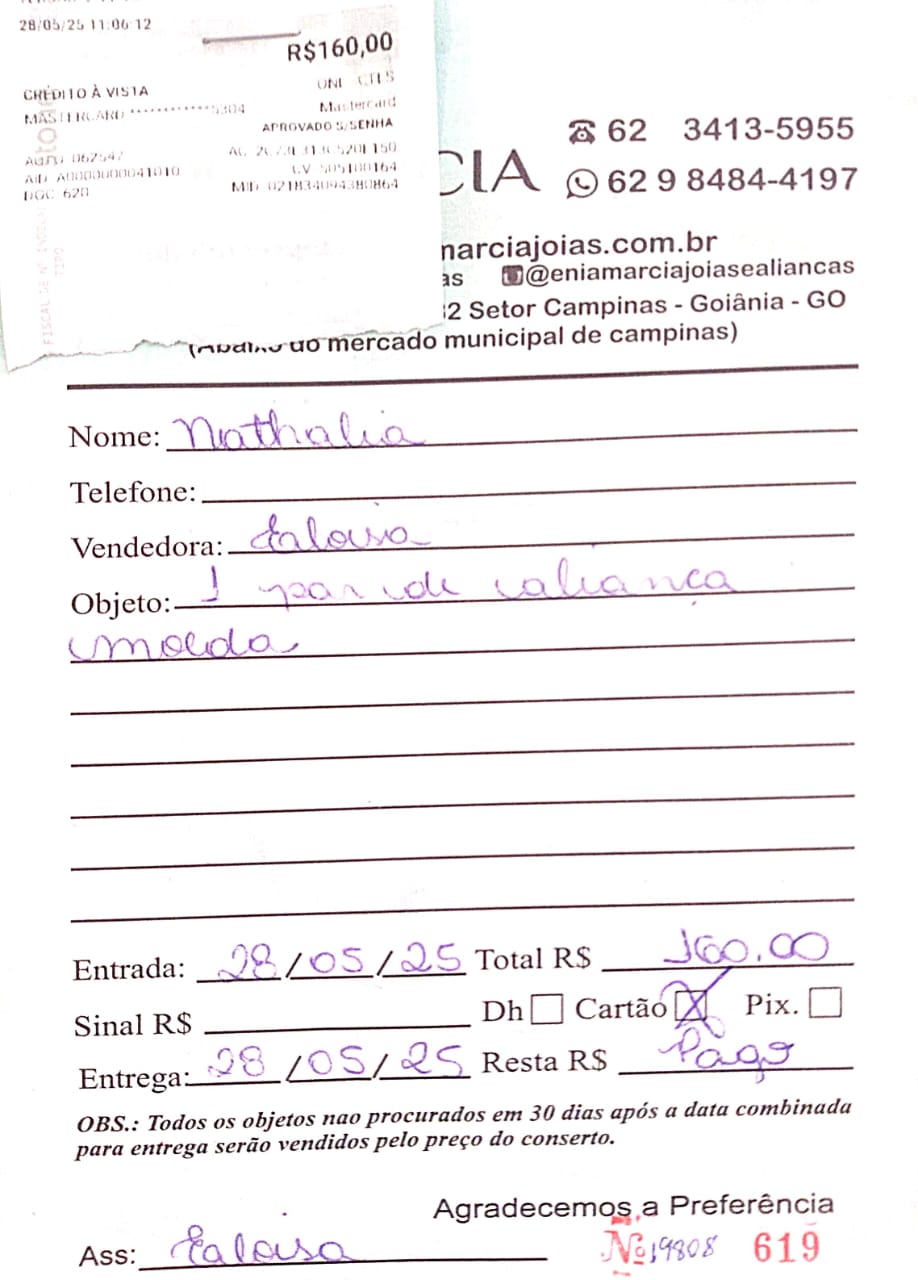 28/05/25 11:06:12
R$160,00
CRÉDITO À VISTA
MASTERCARD ************5304 Mastercard
APROVADO S/SENHA
AUTO 062547
AID A0000000041010 CV 505100164
DOC 620 MID 021834094380864
CIA
62 3413-5955
62 9 8484-4197
marciajoias.com.br
as @eniamarciajoiasealiancas
2 Setor Campinas - Goiânia - GO
(Abaixo do mercado municipal de campinas)
Nome: Nathalia
Telefone:
Vendedora: Faloisa
Objeto: 1 par de aliança
moeda
Entrada: 28/05/25 Total R$ 160,00
Sinal R$ Dh Cartão X Pix.
Entrega: 28/05/25 Resta R$ Pago
OBS.: Todos os objetos nao procurados em 30 dias após a data combinada
para entrega serão vendidos pelo preço do conserto.
Agradecemos a Preferência
Ass: Faloisa Nº 19808 619